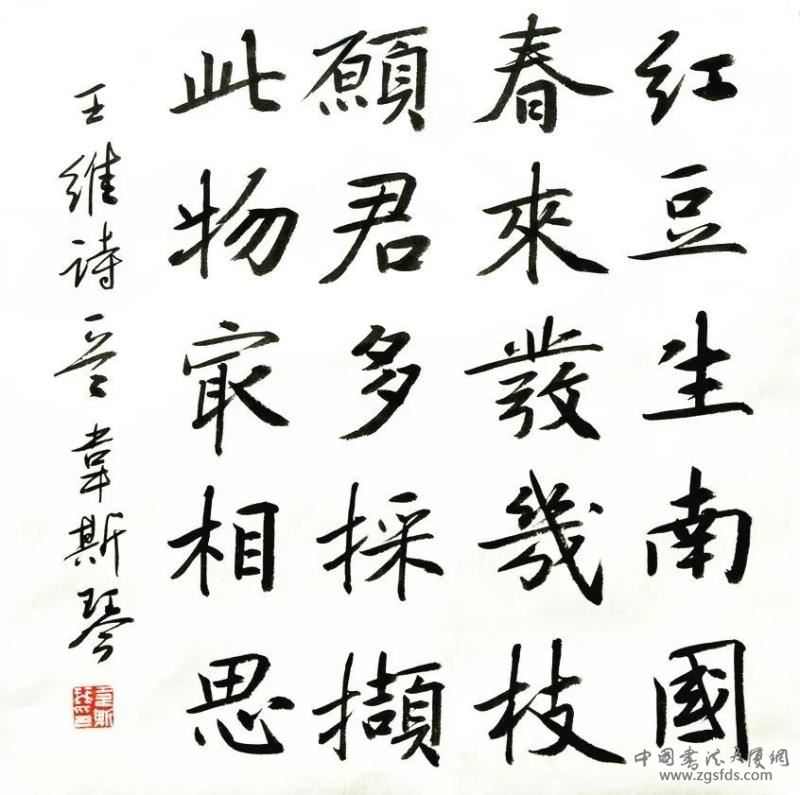 紅豆生南國
春來發幾枝
願君多採擷
此物冣相思
王維詩 壹 韋斯琴
中国书法大厦網
www.zgsfds.com